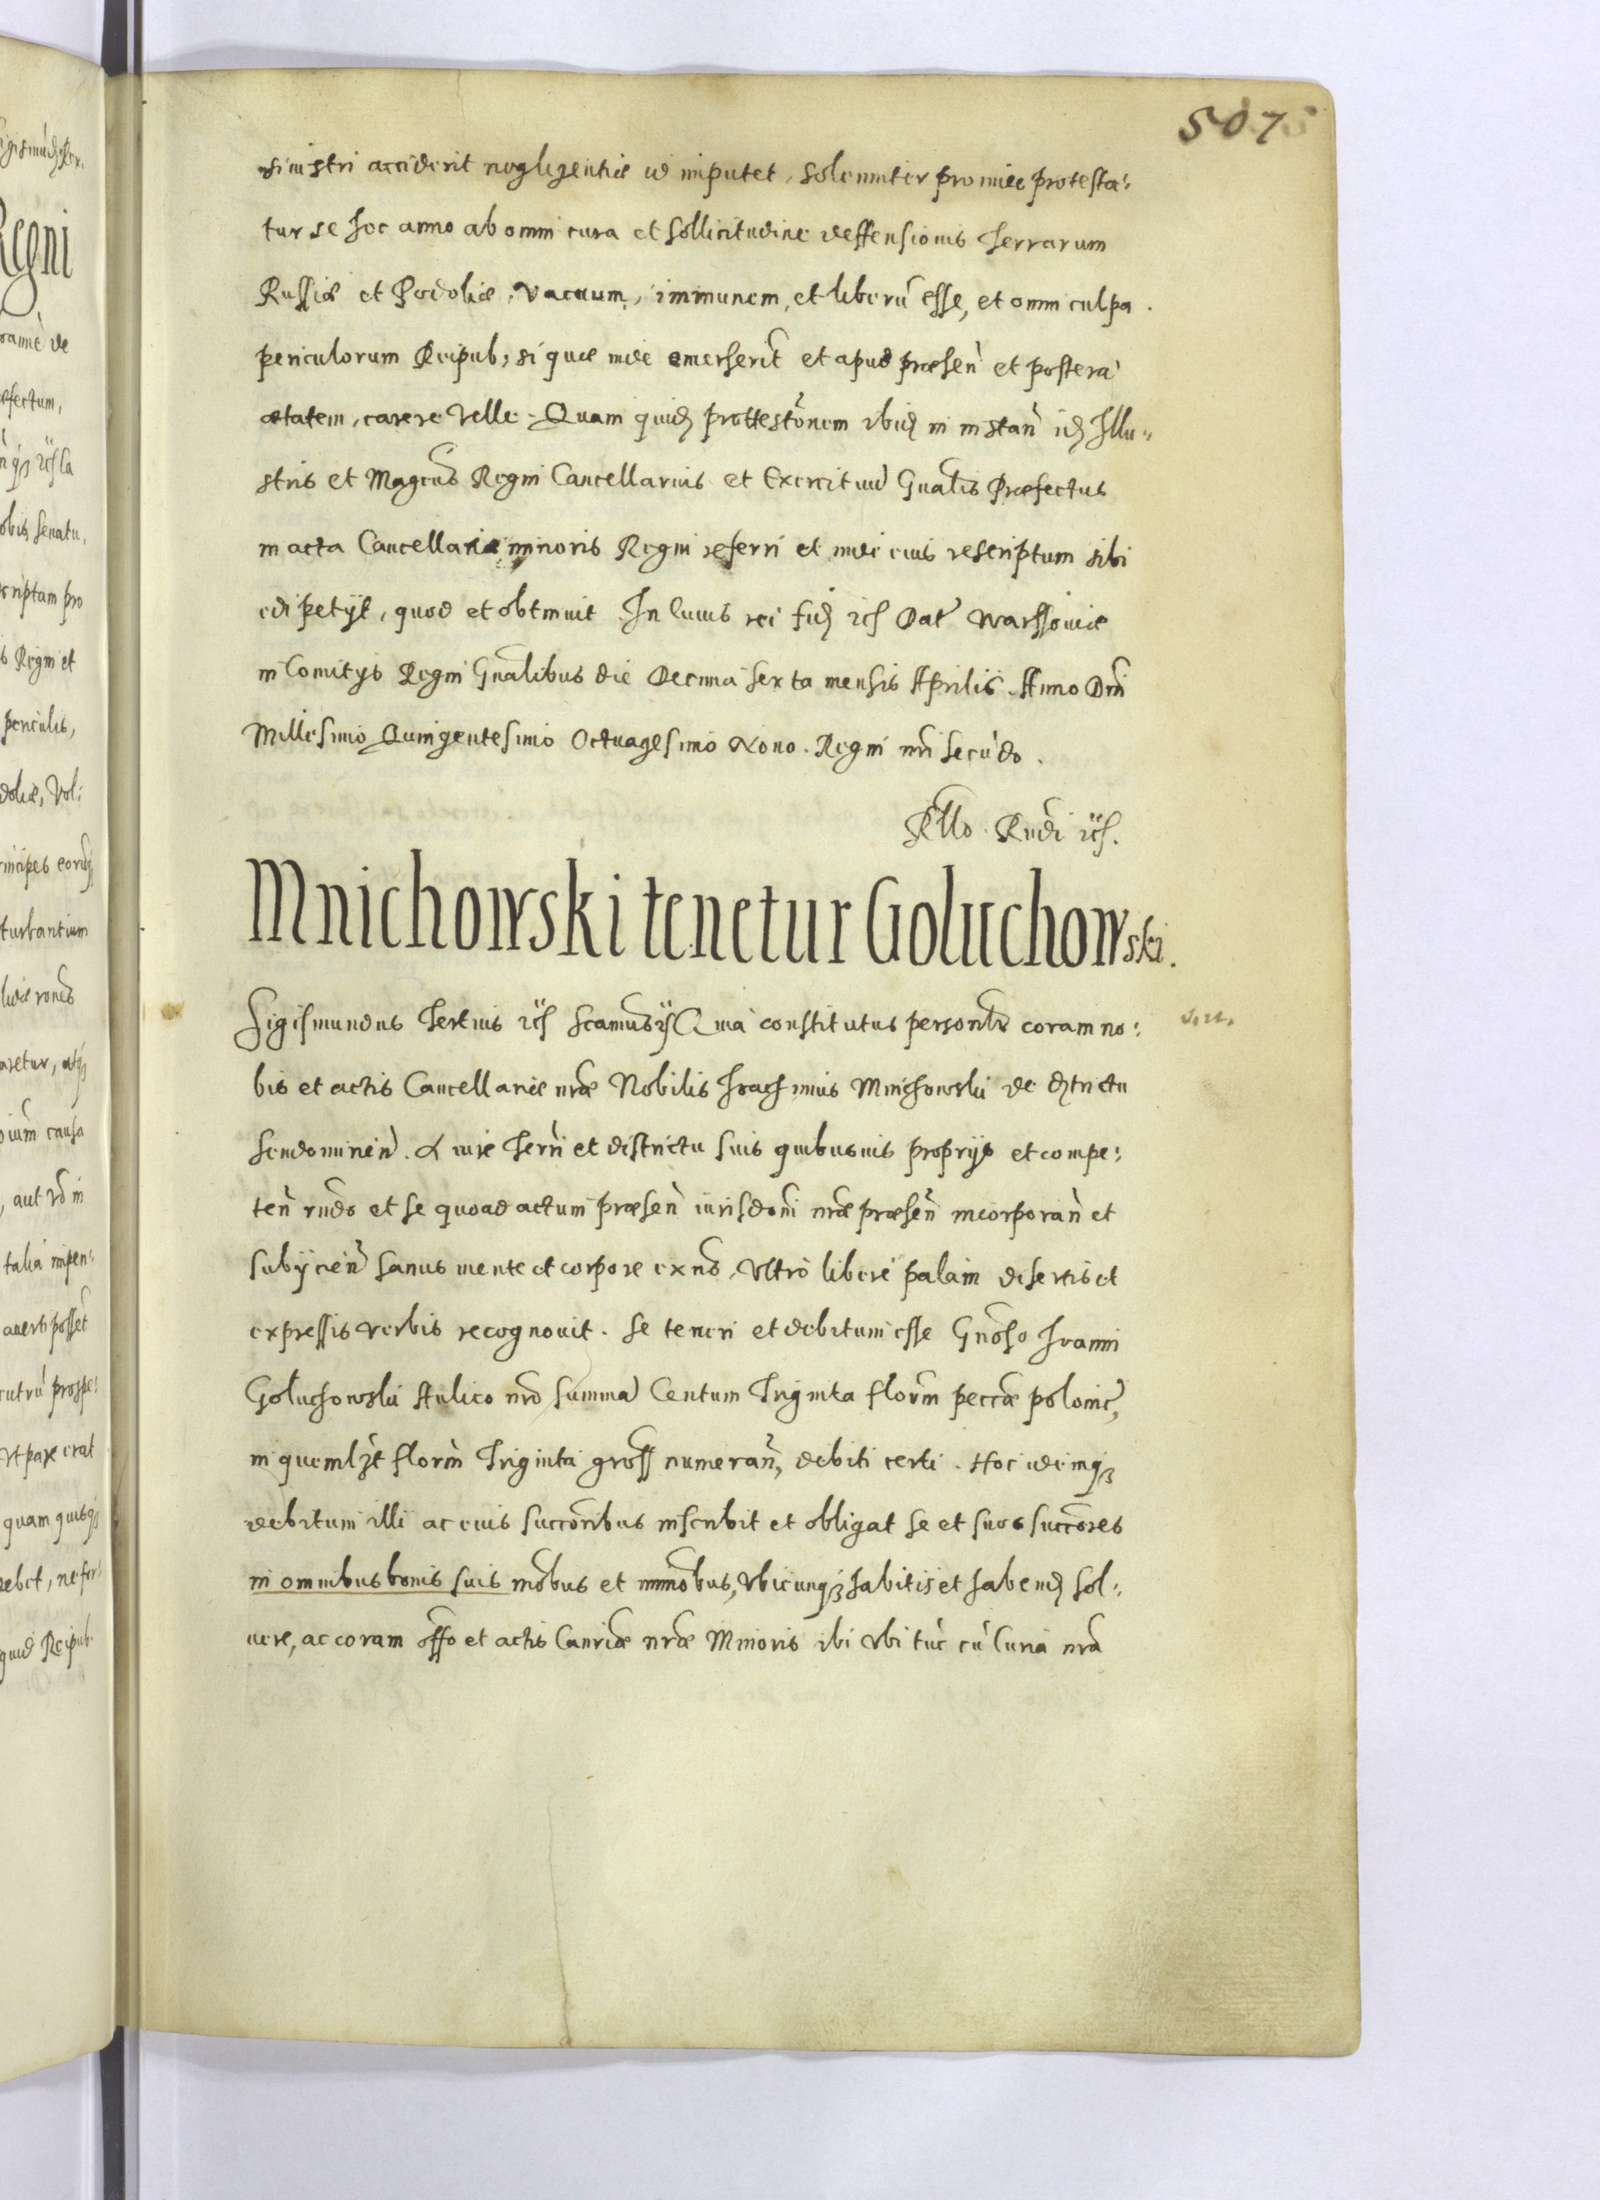 507
sinistri acciderit negligentiæ id imputet, solenniter proinde protesta:
tur se hoc anno ab omni cura et sollicitudine deffensionis Terrarum
Russiæ et Podoliæ, vacuum, immunem, et liberū esse, et omni culpa
periculorum Reipub, si quæ inde emerserit et apud præsen et posterā
ætatem, carere velle. Quam quid protestonem ibid in instan id Illu=
stris et Magcus Regni Cancellarius et Exercituū Gnalis Præfectus
in acta Cancellariæ minoris Regni referri et inde eius rescriptum sibi
edi petijt, quod et obtinuit. In Cuius rei fid etc Dat Warssoviæ
in Comitijs Regni Gnalibus die Decima sexta mensis Aprilis. Anno Dni
Millesimo Quingentesimo Octuagesimo Nono. Regni nri secūdo.
Rllo. Rndi etc.
Mnichowski tenetur Goluchowski.
Sigismundus Tertius etc scamus Quia constitutus personlr coram no:
bis et actis Cancellariæ nræ Nobilis Ioachimus Mnichowski de districtu
Sendominen. A iure Terri et districtu suis quibusuis proprijs et compe:
ten rndo et se quoad actum præsen iurisdoni nræ præsen incorporan et
subijcien sanus mente et corpore exns, Vltro libere palam disertis et
expressis verbis recognouit. Se teneri et debitum esse Gnoso Ioanni
Goluchowski Aulico nro summā Centum Triginta florm peccæ polonic,
in quemlzt florin Triginta gross numeran, debiti certi. Hoc idemq3
debitum illi ac eius succoribus inscribit et obligat se et suos succores
in omnibus bonis suis mobus et immobus, Vbicunq3 habitis et habend sol:
uere, ac coram offo et actis Canriæ nræ Minoris ibi vbi tūc cū Curia nra